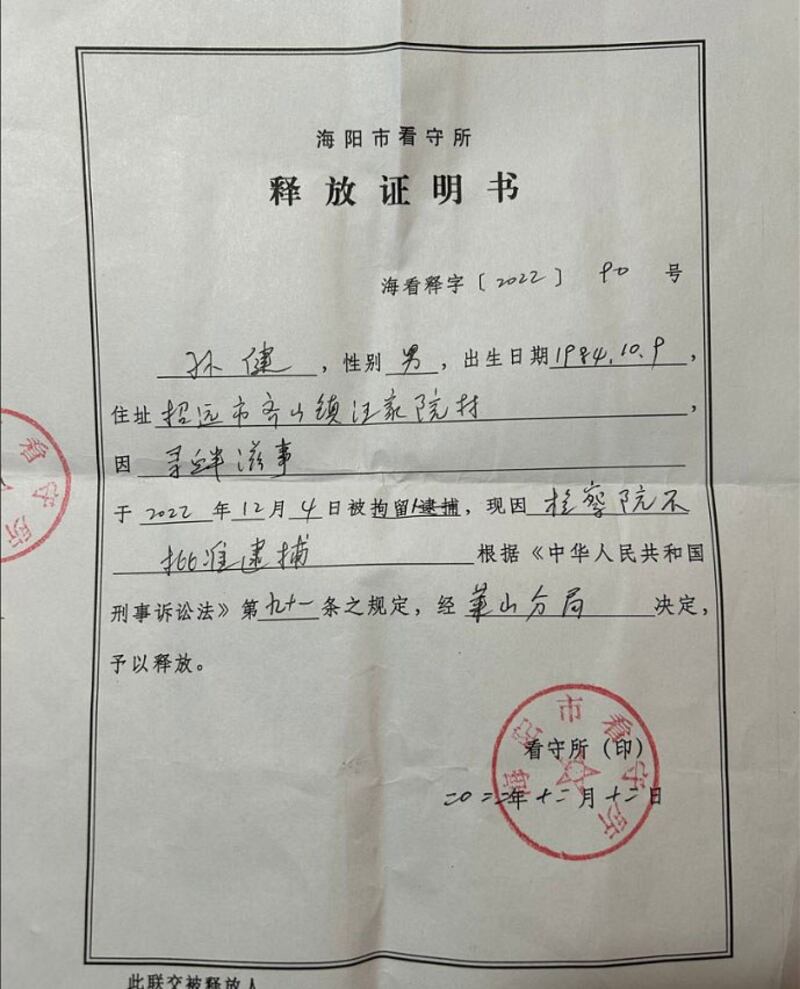 海阳市看守所
释放证明书
海看释字〔2022〕90号
孙健，性别男，出生日期1984.10.9，
住址招远市齐山镇汪家院村，
因寻衅滋事
于2022年12月4日被拘留/逮捕，现因检察院不
批准逮捕根据《中华人民共和国
刑事诉讼法》第九十一条之规定，经莱山分局决定，
予以释放。
海阳市看守所
看守所（印）
二〇二二年十二月十二日
看守所
此联交被释放人